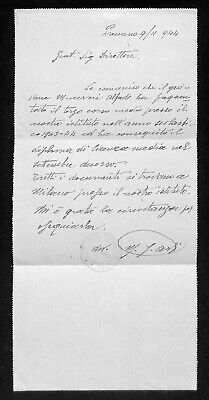 9/11 944
Gent. Sig Direttore,
Le comunico che il gio-
vane Minervini Alfredo ha frequen-
tato il terzo corso media presso il
nostro istituto nell'anno scolasti-
co 1943-44 ed ha conseguito il
diploma di licenza media nel
settembre decorso.
Tutti i documenti si trovano a
Milano presso il nostro istituto.
Mi è grata la circostanza per
ossequiarla.